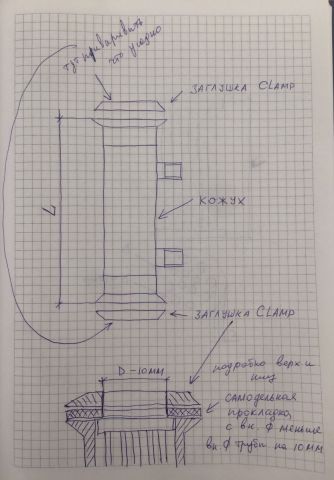 тут приваривать
что угодно
ЗАГЛУШКА CLAMP
L
КОЖУХ
ЗАГЛУШКА CLAMP
D-10ММ
подробно верх и
низ
САМОДЕЛЬНАЯ
прокладка
с вн. ф меньше
вн. ф трубы на 10мм